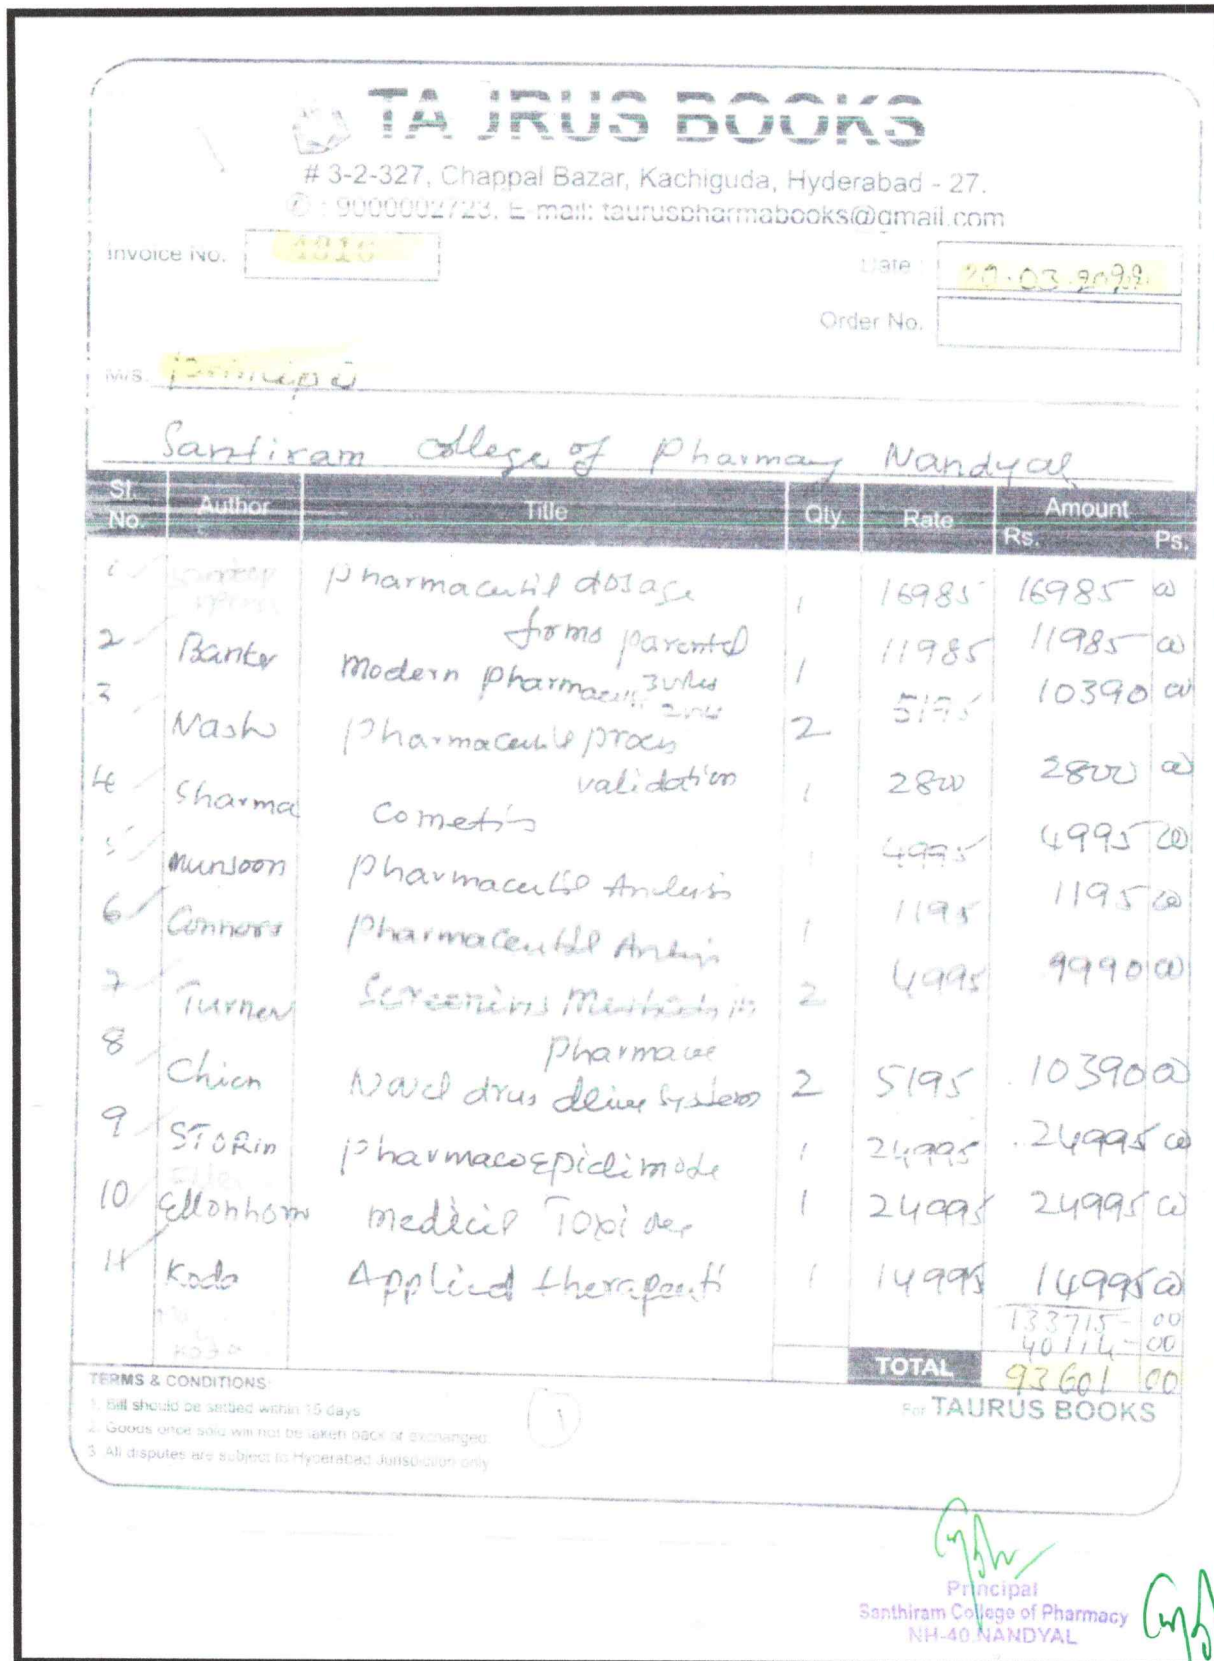 TAURUS BOOKS
# 3-2-327, Chappal Bazar, Kachiguda, Hyderabad - 27.
✆ : 9000002723. E-mail: tauruspharmabooks@gmail.com
Invoice No. 4816
Date :
03.2022
Order No.
M/s. Principal
Santiram College of Pharmacy Nandyal
Sl. No. Author Title Qty. Rate Amount Rs. Ps.
1 pharmaceutil dosage 1 16985 16985 00
forms parental
3 vols
2 Banker Modern pharmaceuti 1 11985 11985 00
2 vols
3 Nash Pharmaceutil process 2 5195 10390 00
validation
4 Sharma Cometis 1 2800 2800 00
5 Munsoon pharmaceutil Analysis 1 4995 4995 00
6 Connors Pharmaceutil Analysis 1 1195 1195 00
7 Turner Screenins Methods in 2 4995 9990 00
pharmace
8 Chien Novel drus delive systems 2 5195 10390 00
9 STORin pharmacoepidimode 1 24995 24995 00
10 Ellonhorn Medicil Toxi 1 24995 24995 00
11 Koda Applied therapeuti 1 14995 14995 00
133715-00
40114-00
TOTAL 93601 00
TERMS & CONDITIONS:
1. Bill should be settled within 15 days
2. Goods once sold will not be taken back or exchanged.
3. All disputes are subject to Hyderabad Jurisdiction only
For TAURUS BOOKS
Principal
Santhiram College of Pharmacy
NH-40 NANDYAL